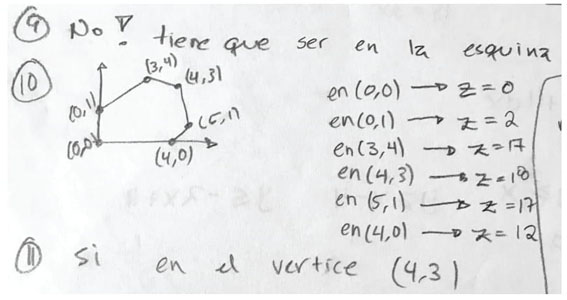 9 No! tiene que ser en la esquina
10
(3,4)
(4,3)
(0,1)
(5,1)
(0,0)
(4,0)
en (0,0) → z = 0
en (0,1) → z = 2
en (3,4) → z = 17
en (4,3) → z = 18
en (5,1) → z = 17
en (4,0) → z = 12
11 si en el vertice (4,3)